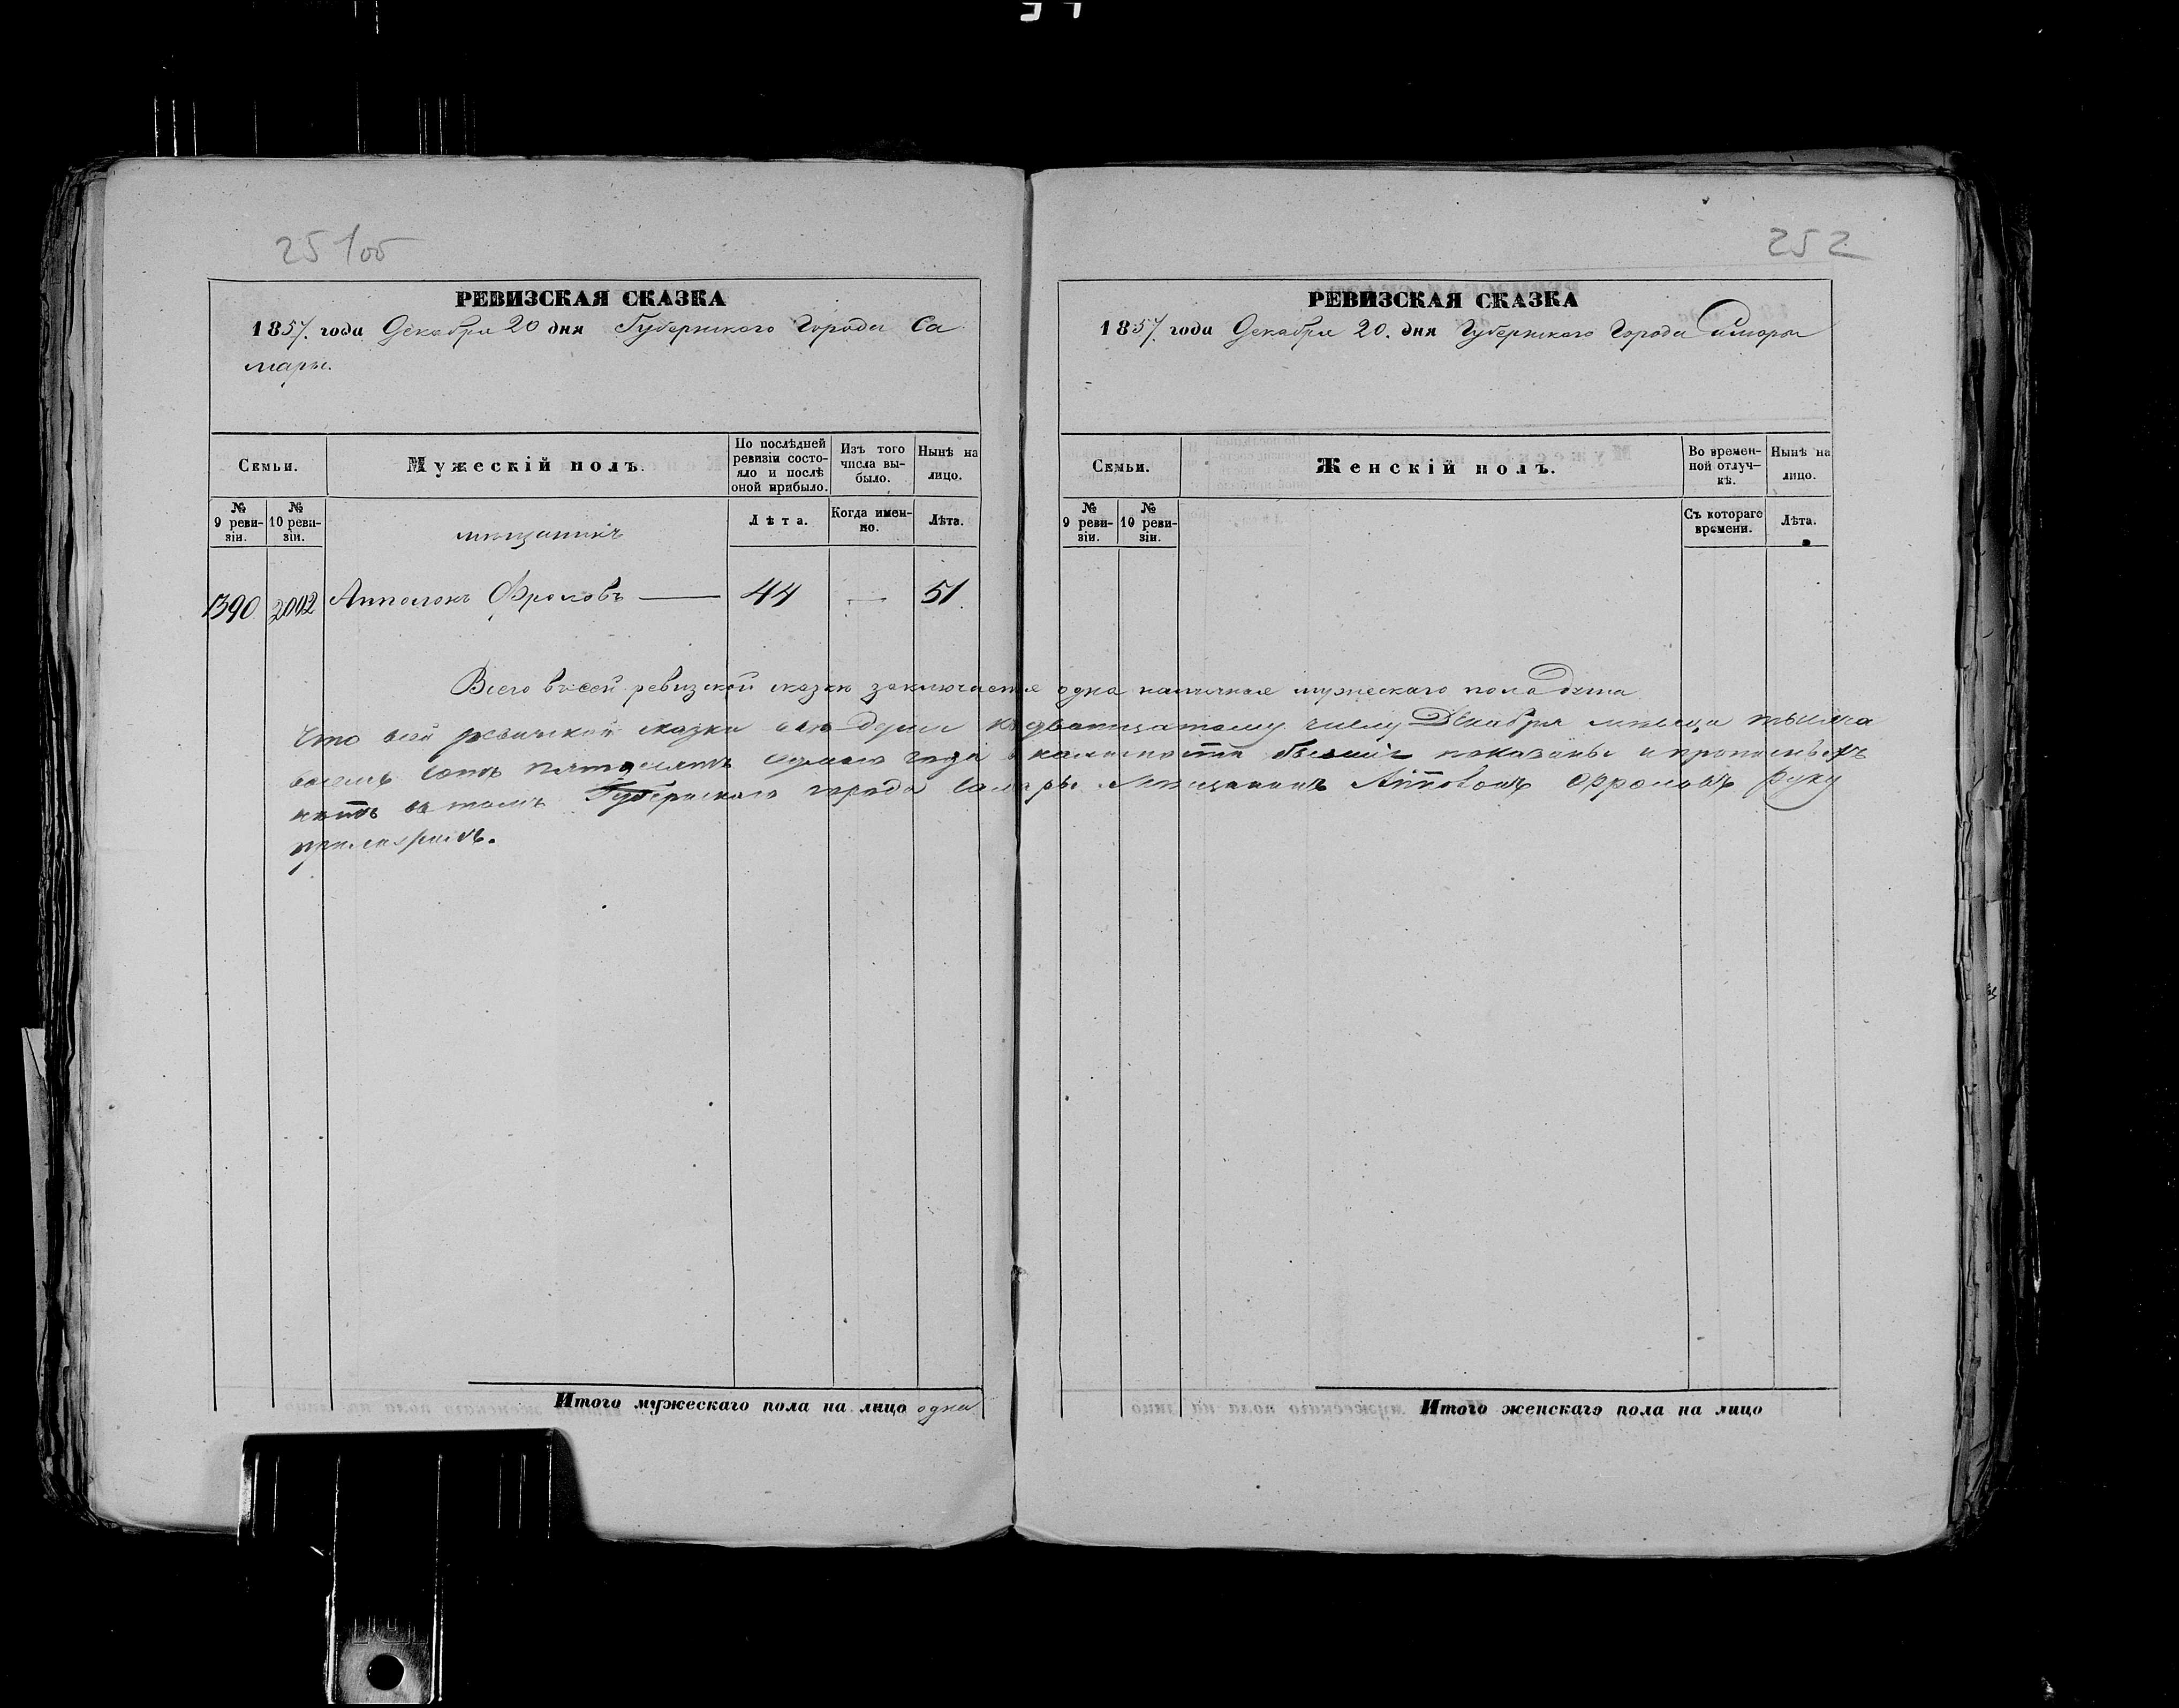 251об
РЕВИЗСКАЯ СКАЗКА
1857. года Декабря 20 дня Губернскаго Города Са
мары.
Семьи.
Мужескій полъ.
По послѣдней ревизіи состояло и послѣ оной прибыло.
Изъ того числа выбыло.
Нынѣ на лицо.
№ 9 ревизіи.
№ 10 ревизіи.
мещанинъ
Лѣта.
Когда именно.
Лѣта.
1390 2002 Апполонъ Фроловъ — 44 — 51.
252
РЕВИЗСКАЯ СКАЗКА
1857. года Декабря 20. дня Губернскаго Города Самары
Семьи.
Женскій полъ.
Во временной отлучкѣ.
Нынѣ на лицо.
№ 9 ревизіи.
№ 10 ревизіи.
Съ котораго времени.
Лѣта.
Всего въ сей ревизской сказке заключается одна наличная мужескаго пола душа
Что въ сей ревизской сказки все души къ дватцатому числу Декабря месеца тысяча
восемь сотъ пятдесятъ седмаго года налицо показаны и
нетъ въ томъ Губернскаго города Самары Мещанинъ Фроловъ руку
приложилъ.
Итого мужескаго пола на лицо одна
Итого женскаго пола на лицо